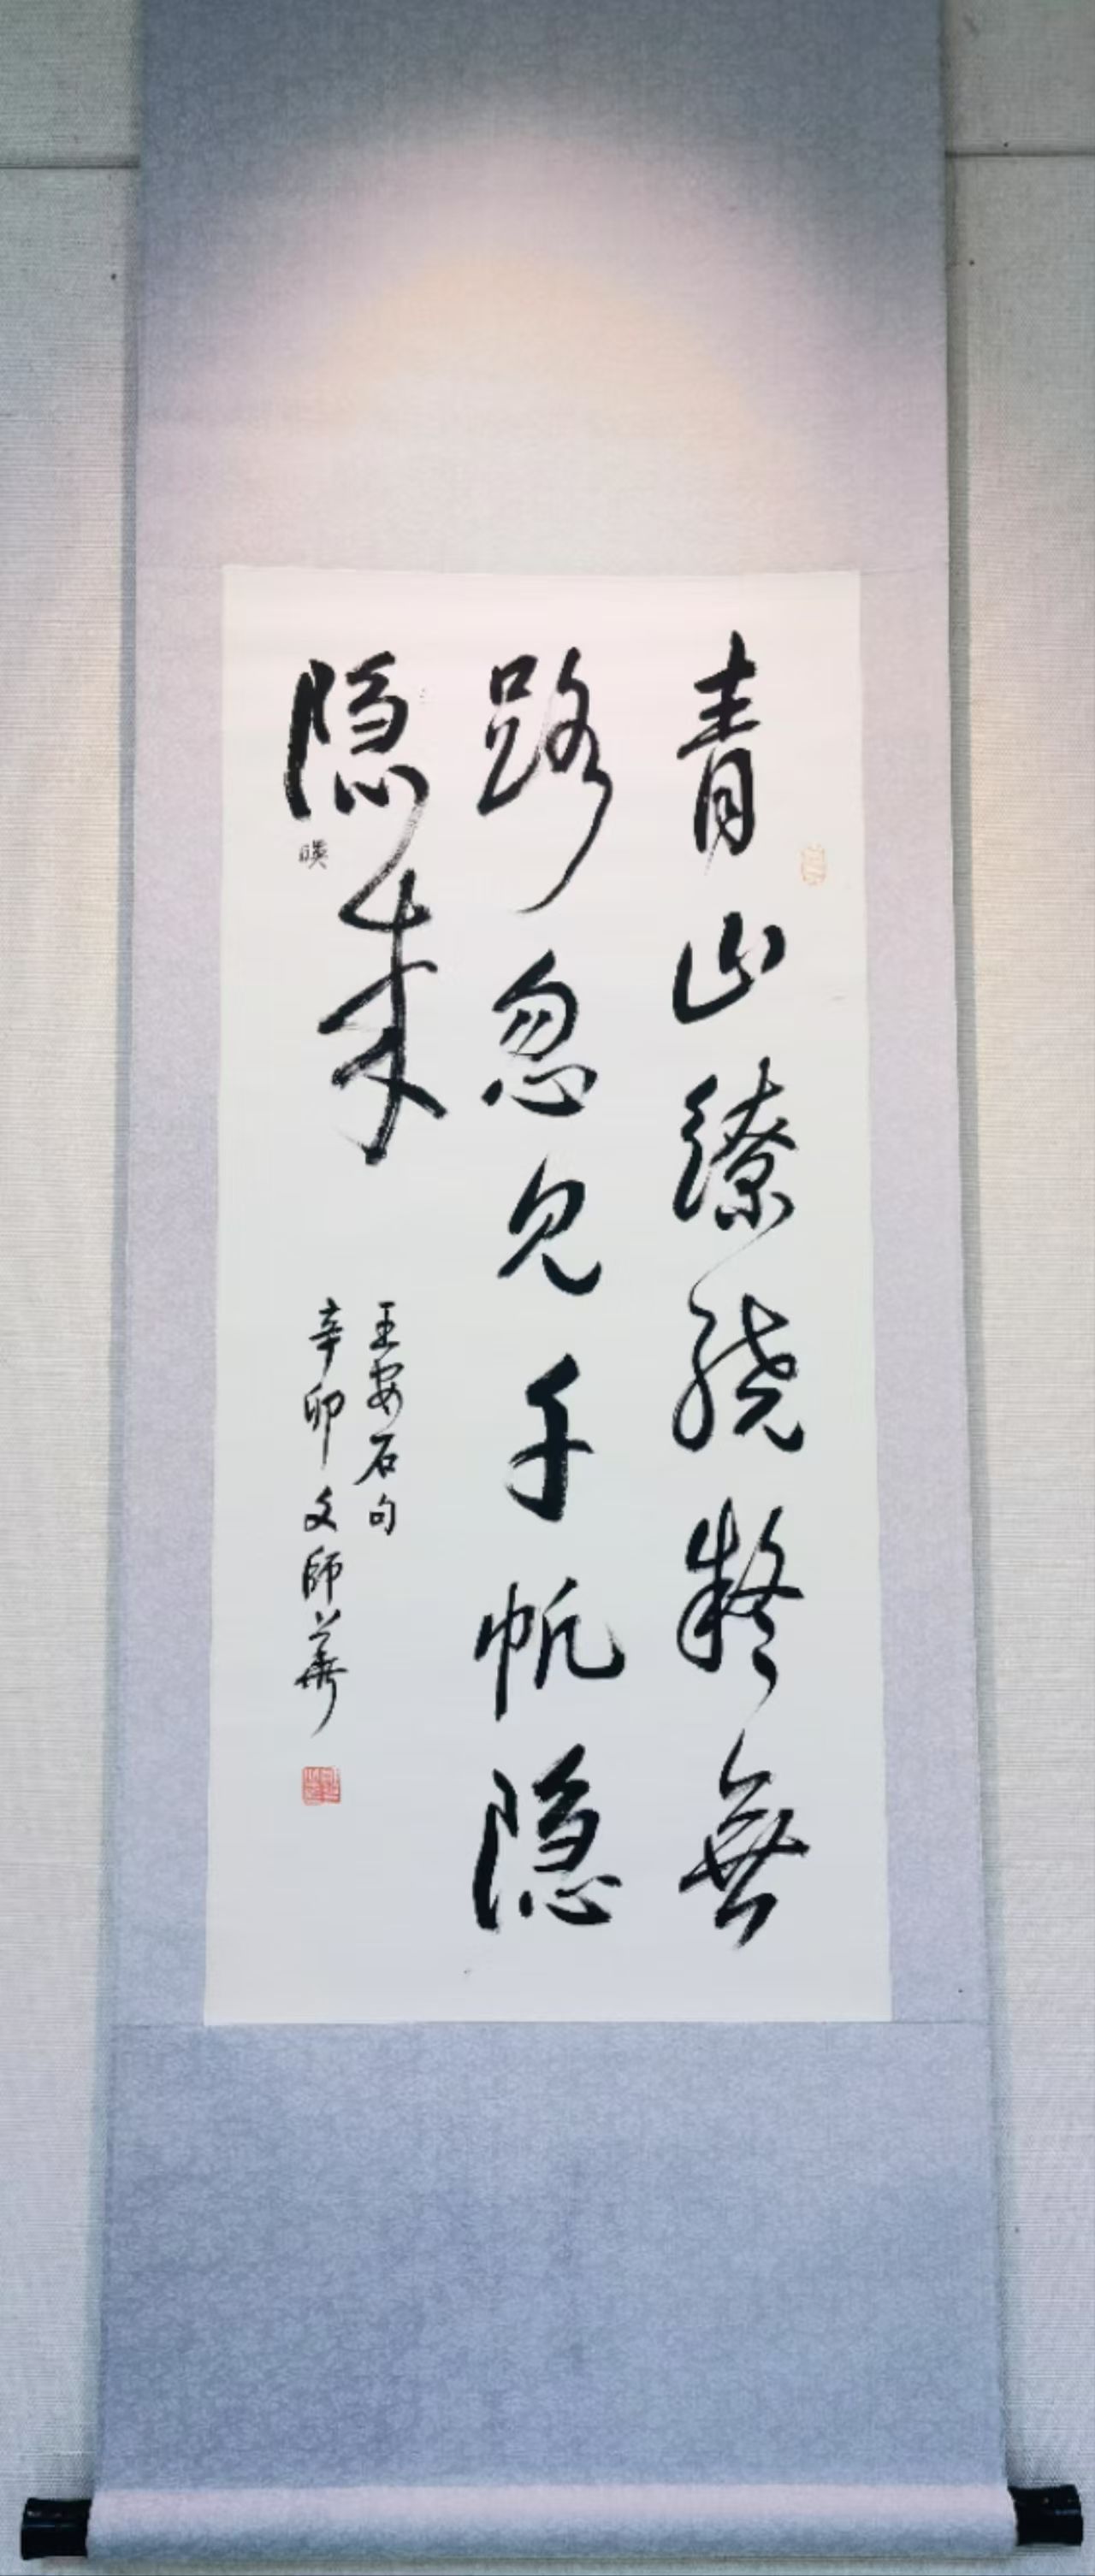 青山繚繞疑無
路忽見千帆隐
隐来
暎
王安石句
辛卯文師華